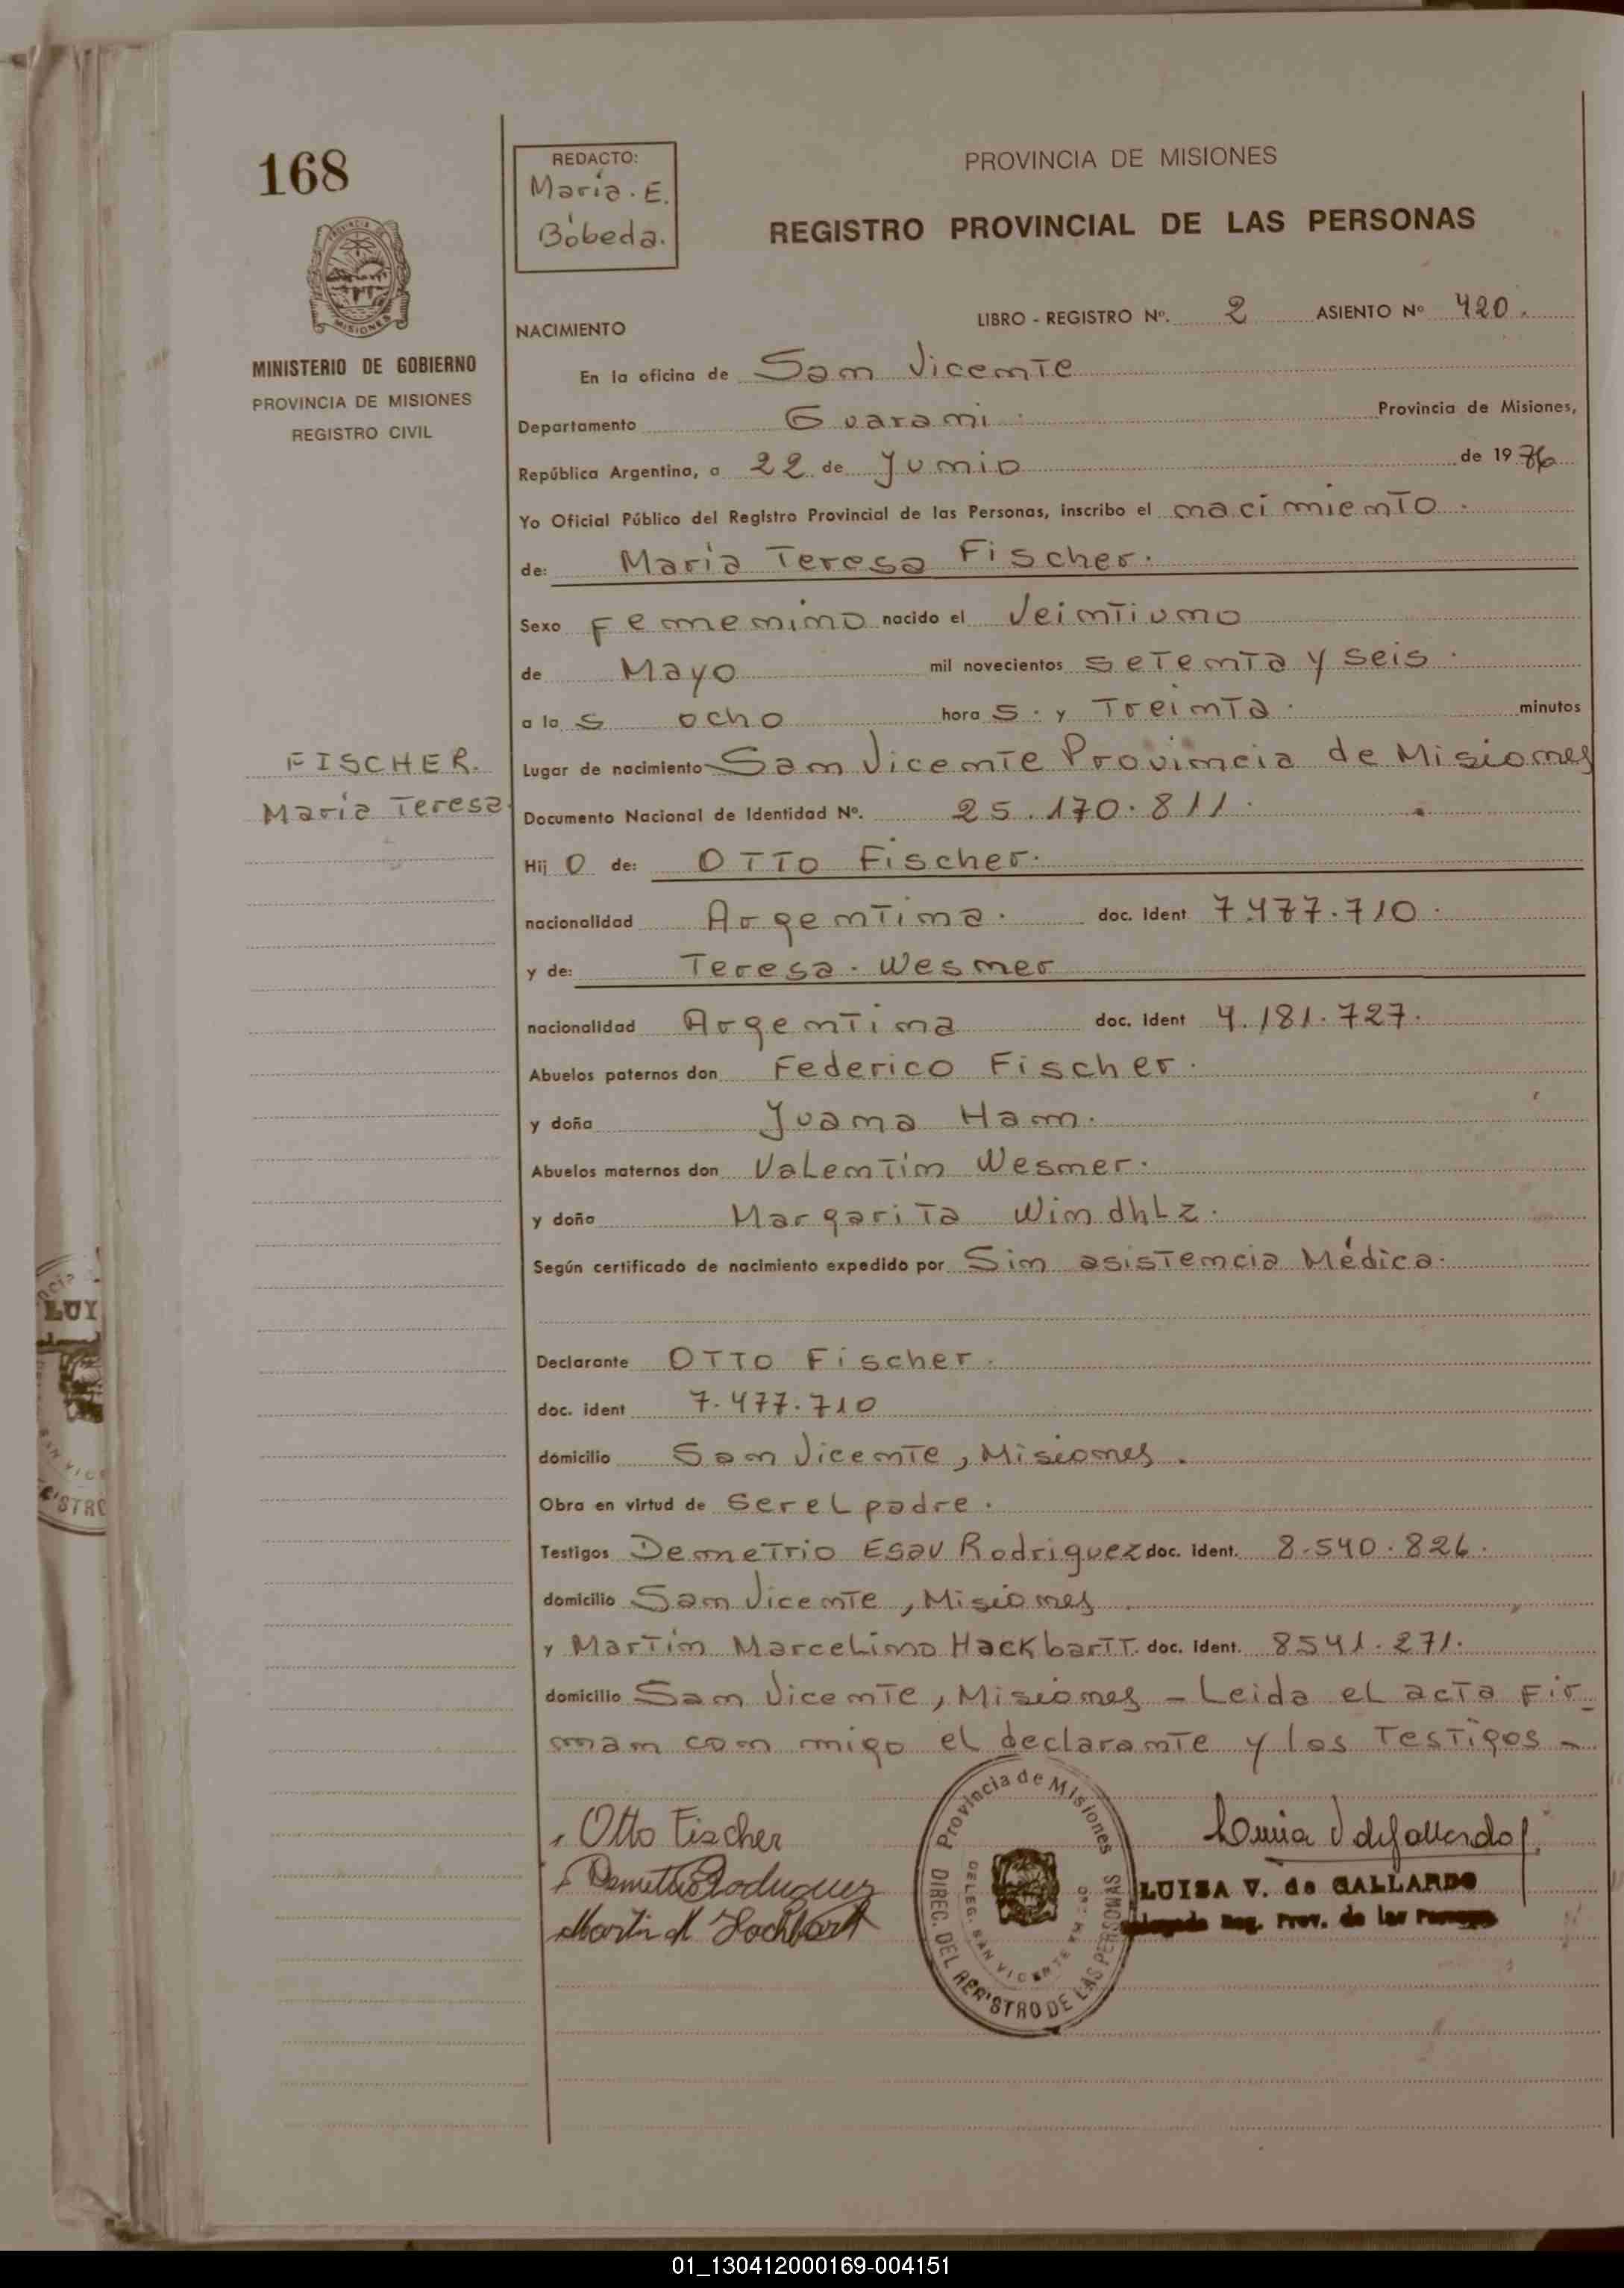 168
REDACTO:
María. E.
Bóbeda.
PROVINCIA DE MISIONES
REGISTRO PROVINCIAL DE LAS PERSONAS
MISIONES
MINISTERIO DE GOBIERNO
PROVINCIA DE MISIONES
REGISTRO CIVIL
LIBRO - REGISTRO Nº. 2 ASIENTO Nº 420.
NACIMIENTO
En la oficina de San Vicente
Departamento Guarani. Provincia de Misiones,
República Argentina, a 22 de Junio de 1976
Yo Oficial Público del Registro Provincial de las Personas, inscribo el nacimiento.
de: María Teresa Fischer.
Sexo Femenino nacido el Veintiuno
de Mayo mil novecientos setenta y seis.
a las ocho horas. y Treinta. minutos
FISCHER.
María Teresa.
Lugar de nacimiento San Vicente Provincia de Misiones
Documento Nacional de Identidad Nº. 25.170.811.
Hijo de: OTTO Fischer.
nacionalidad Argentina. doc. Ident 7.477.710.
y de: Teresa. Wesner
nacionalidad Argentina doc. Ident 4.181.727.
Abuelos paternos don Federico Fischer.
y doña Juana Han.
Abuelos maternos don Valentín Wesner.
y doña Margarita Windhlz.
Según certificado de nacimiento expedido por Sin asistencia Médica.
Declarante OTTO Fischer.
doc. ident 7.477.710
domicilio San Vicente, Misiones.
Obra en virtud de ser el padre.
Testigos Demetrio Esau Rodriguez doc. ident. 8.540.826.
domicilio San Vicente, Misiones.
y Martín Marcelino Hackbartt. doc. ident. 8541.271.
domicilio San Vicente, Misiones - Leida el acta fir-
man con migo el declarante y los testigos -
Otto Fischer
Demetrio Rodriguez
Martin M Hackbart
Provincia de Misiones
DIREC. DEL REGISTRO DE LAS PERSONAS
DELEG. SAN VICENTE
LUISA V. de GALLARDO
Reg. Prov. de las Personas
LUY
01_130412000169-004151